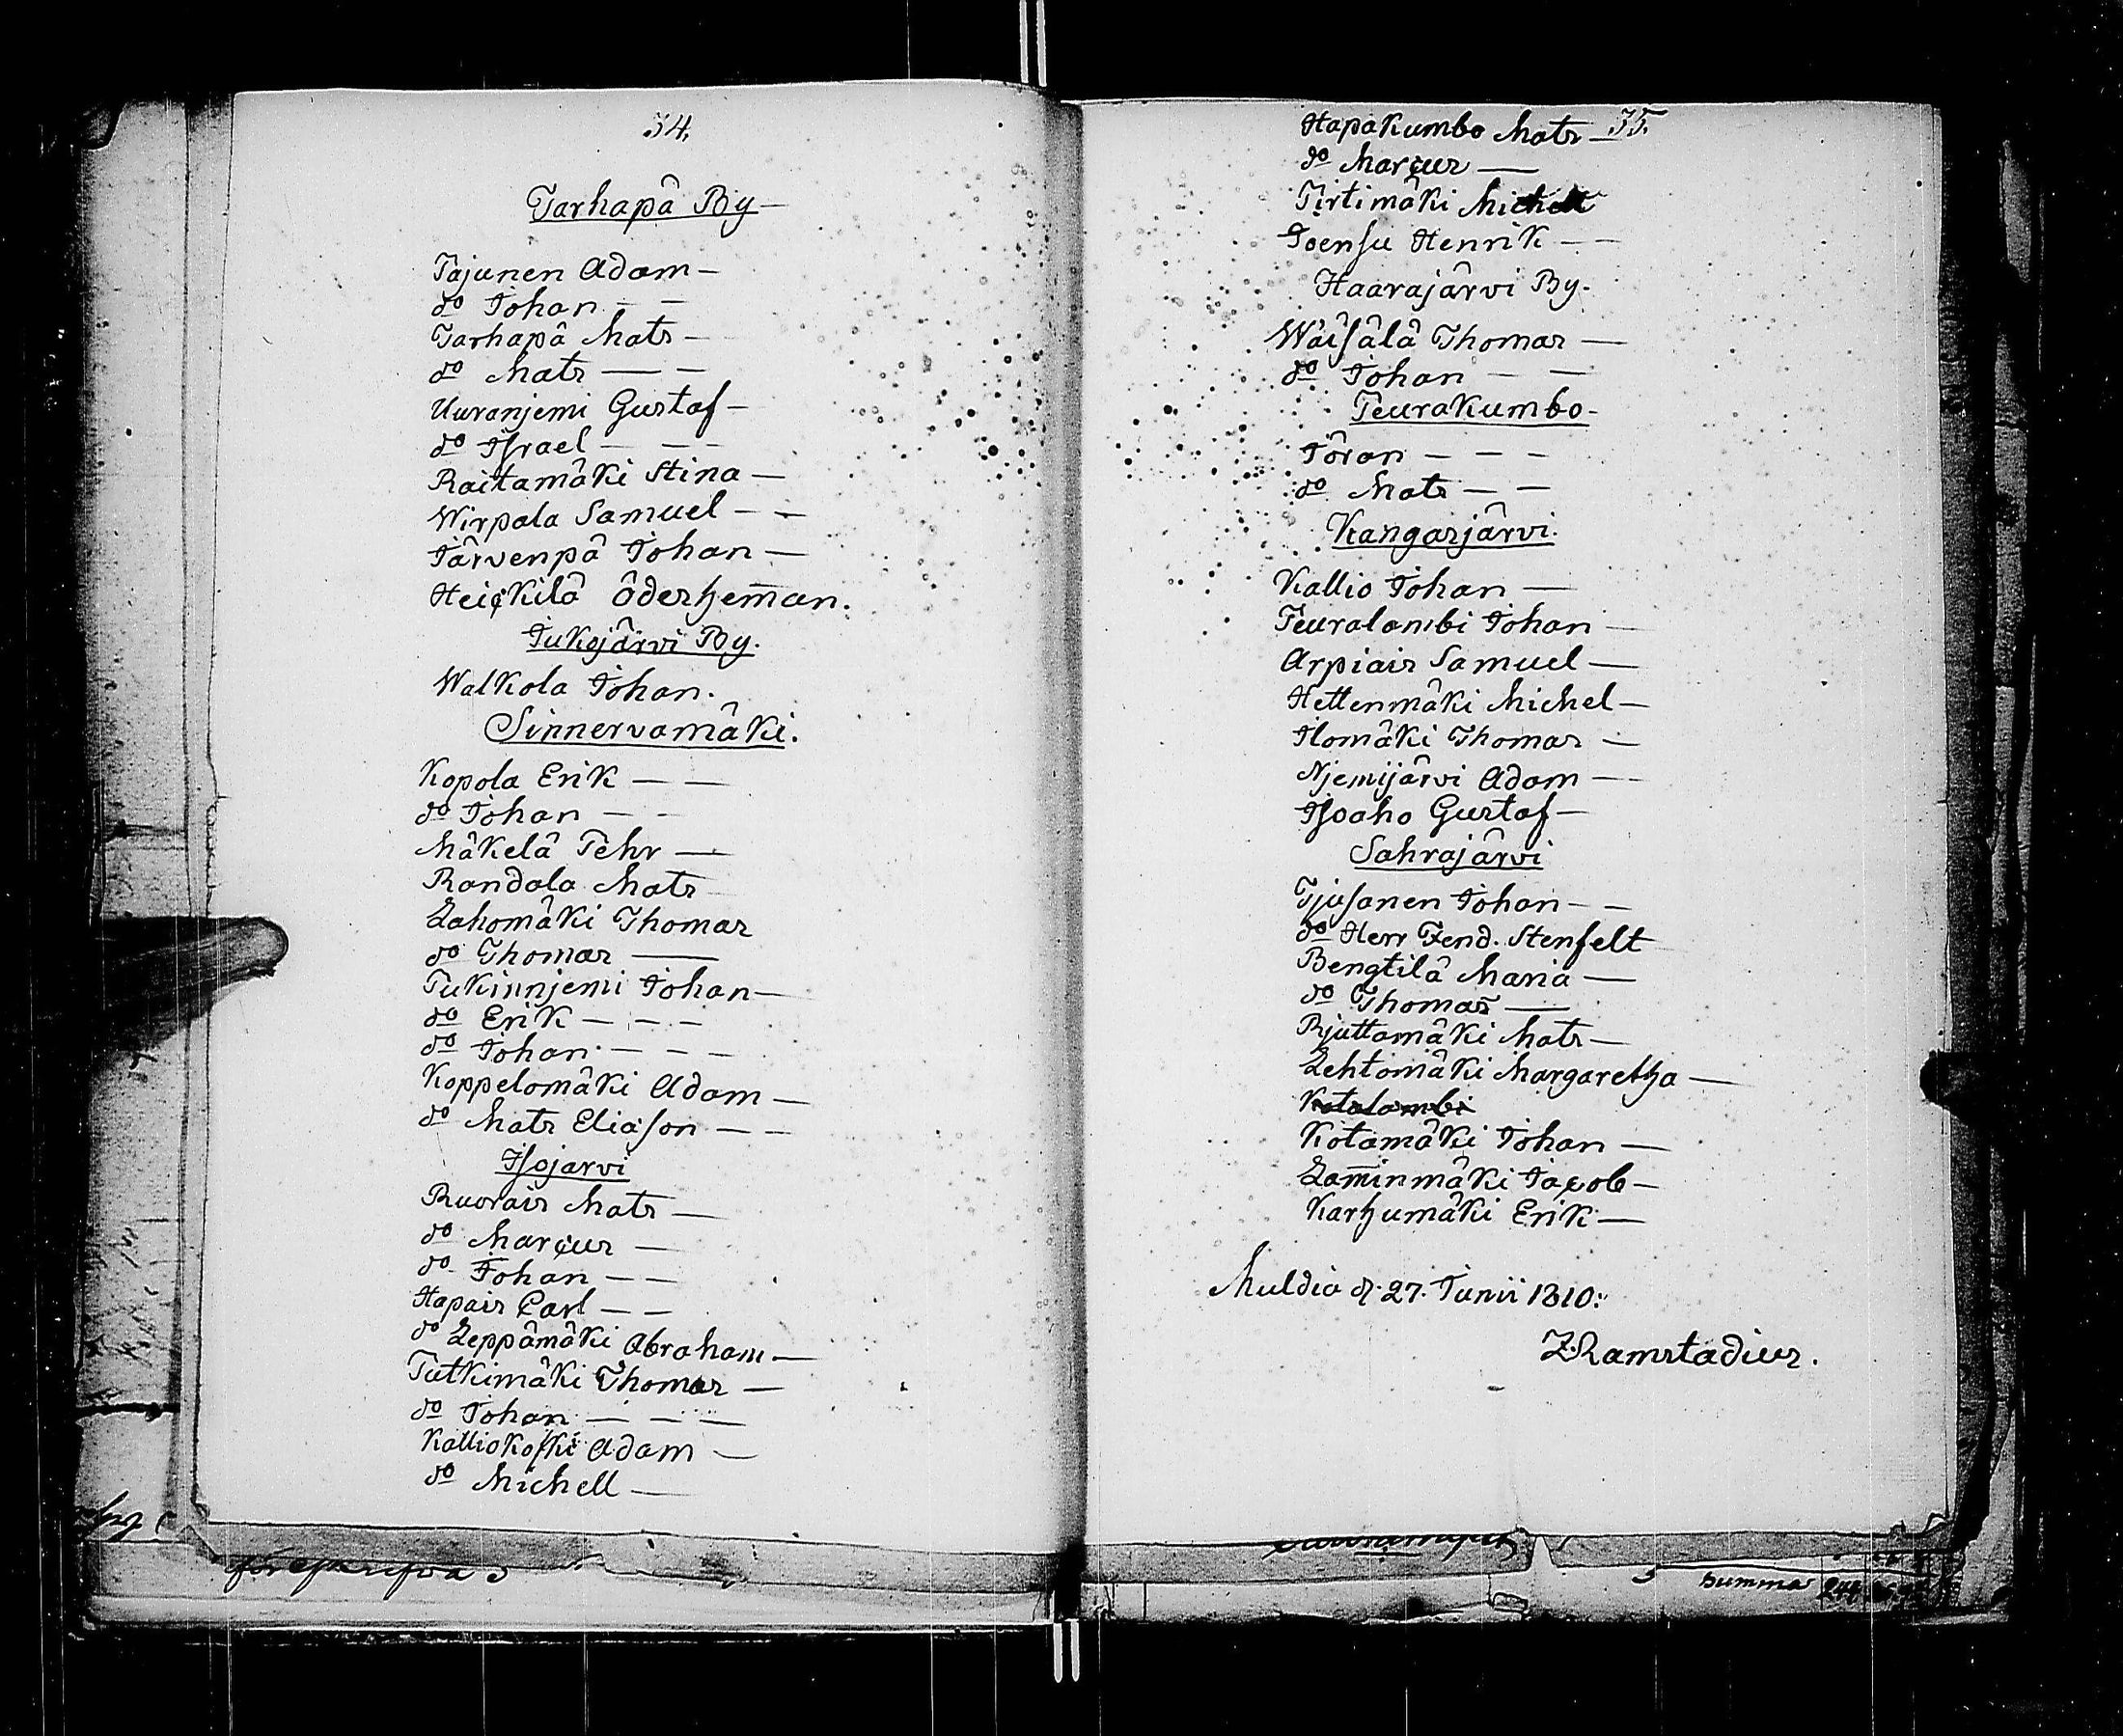 34.
Tarhapä By
Tajunen Adam
do Johan
Tarhapä Mats
do Mats
Uuranjemi Gustaf
do Israel
Raitamäki Stina
Wirpala Samuel
Järvenpä Johan
Heickilä öderheman.
Jukojärvi By.
Walkola Johan.
Sinnervamäki.
Kopola Erik
do Johan
Mäkelä Pehr
Randala Mats
Lahomäki Thomas
do Thomas
Tukinnjemi Johan
do Erik
do Johan
Koppelomäki Adam
do Mats Eliason
Isojarvi
Ruorais Mats
do Marcus
do Johan
Hapais Carl
do Leppämäki Abraham
Tutkimäki Thomas
do Johan
Kalliokoski Adam
do Michell
35.
Hapakumbo Mats
do Marcus
Pirtimäki Michell
Joensu Henrik
Haarajärvi By.
Wäisälä Thomas
do Johan
Peurakumbo
Jöran
do Mats
Kangasjärvi.
Kallio Johan
Peuralambi Johan
Arpiais Samuel
Hettenmäki Michel
Ilomäki Thomas
Njemijärvi Adam
Isoaho Gustaf
Sahrajärvi
Tjusanen Johan
do Herr Fend. Stenfelt
Bengtilä Maria
do Thomas
Rjuttamäki Mats
Lehtomäki Margaretha
Kotalambi
Kotamäki Johan
Lam̄inmäki Jacob
Karhumäki Erik
Muldia d. 27. Junii 1810:
Z. Ramstadius.
summa